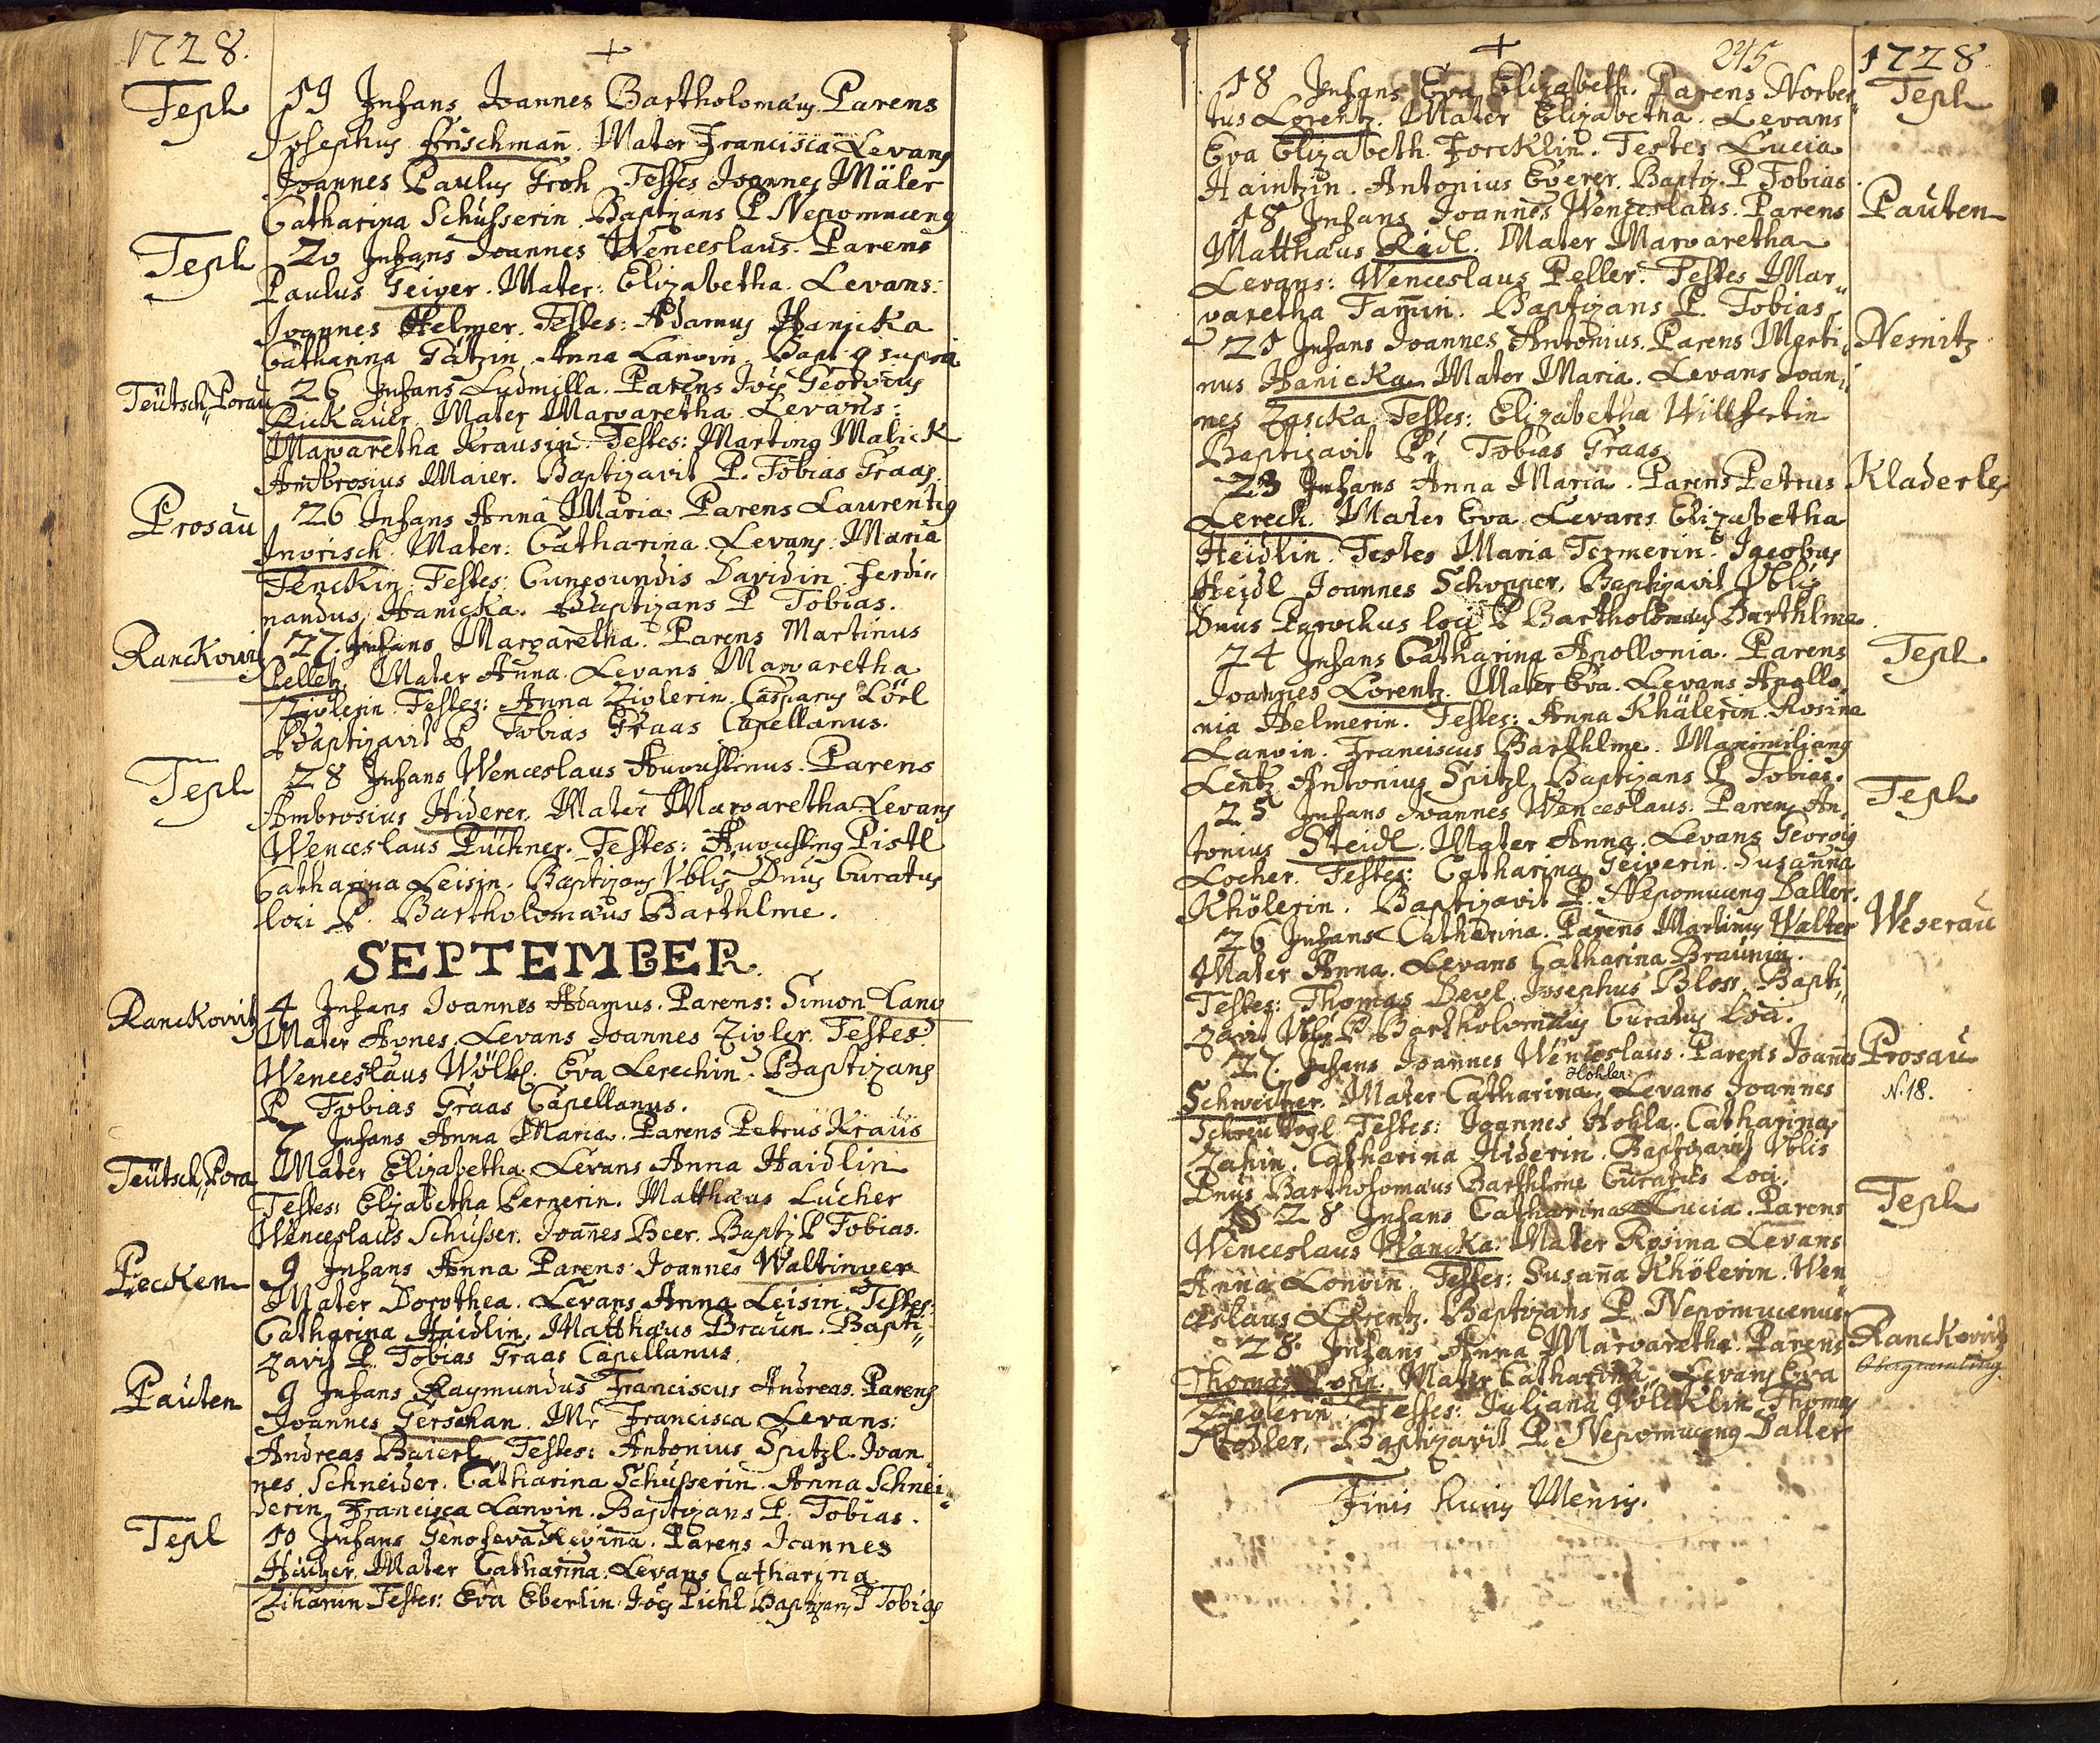 1728.
Tepl
19 Infans Joannes Bartholomæus. Parens
Josephus Frischman̄. Mater Francisca Levans
Joannes Paulus Groh Testes Joannes Mäler
Catharina Schusserin. Baptizans P. Nepomucenus
Tepl
20 Infans Joannes Wenceslaus. Parens
Paulus Geiger. Mater: Elizabetha. Levans:
Joannes Helmer. Testes: Adamus Hanicka
Catharina Gätzin. Anna Langin. Bapt. supra
Teütsch Porau
26 Infans Ludmilla. Parens Georgius
Rickauer. Mater Margaretha Levans:
Margaretha Krausin. Testes: Martinus Malick
Ambrosius Maier. Baptizavit P. Tobias Graas.
Prosau
26 Infans Anna Maria. Parens Laurentius
Ingrisch. Mater: Catharina. Levans: Maria
Tenckin. Testes: Cunegundis Davidin. Ferdi„
nandus Hanicka. Baptizans P Tobias.
Ranckowitz
27. Infans Margaretha. Parens Martinus
Pelletz. Mater Anna. Levans Margaretha
Ziglerin. Testes: Anna Ziglerin. Casparus Lörl
Baptizavit P Tobias Graas Capellanus.
Tepl
28 Infans Wenceslaus Augustinus. Parens
Ambrosius Hiderer. Mater Margaretha Levans
Wenceslaus Püchner. Testes: Augustinus Pistl
Catharina Leisin. Baptizans Vblis Dnus Curatus
loci P. Bartholomæus Barthlme.
SEPTEMBER.
Ranckovitz
4 Infans Joannes Adamus. Parens: Simon Lang
Mater Agnes. Levans Joannes Zigler. Testes
Wenceslaus Wölkl. Eva Lerechin. Baptizans
P Tobias Graas Capellanus.
7 Infans Anna Maria. Parens Petrus Kraüs
Teütsch Pora
Mater Elizabetha. Levans Anna Haidlin
Testes: Elizabetha Pernerin. Matthæus Lucher
Wenceslaus Schusser. Joan̄es Beer. Baptiz P Tobias.
Pecken
9 Infans Anna Parens Joannes Waltinger
Mater Dorothea. Levans Anna Leisin. Testes:
Catharina Haidlin. Matthæus Braun. Bapti„
zavit P. Tobias Graas Capellanus.
Pauten
9 Infans Raymundus Franciscus Andreas. Parens
Joannes Gerschan. Mr Francisca Levans:
Andreas Baierl. Testes: Antonius Spitzl. Joan
nes Schneider. Catharina Schusserin. Anna Schnei„
derin Francisca Langin. Baptizans P. Tobias.
Tepl
10 Infans Genofeva Regina. Parens Joannes
Hützer. Mater Catharina. Levans Catharina
Testes: Eva Eberlin. Pichl Baptizans P Tobias
245
1728.
18 Infans Eva Elizabeth. Parens Norber„
Tepl
tus Lorentz. Mater Elizabetha. Levans
Eva Elizabeth Forcklin. Testes Lucia
Haintzin. Antonius Everer. Baptiz. P Tobias
18 Infans Joannes Wenceslaus. Parens
Pauten
Matthæus Rädl. Mater Margaretha
Levans: Wenceslaus Peller. Testes Mar„
garetha Tam̄in. Baptizans P. Tobias
21 Infans Joannes Antonius. Parens Marti„
Nesnitz
nus Hanicka. Mater Maria. Levans Joan„
nes Zascka. Testes: Elizabetha Willfertin
Baptizavit Pr Tobias Graas
23 Infans Anna Maria. Parens Petrus
Kladerles
Lerech. Mater Eva. Levans Elizabetha
Heidlin. Testes Maria Termerin. Jacobus
Heidl Joannes Schopper. Baptizavit Vblis
Dnus Parochus loci P Bartholomæus Barthlme.
24 Infans Catharina Apollonia. Parens
Tepl
Joannes Lorentz. Mater Eva. Levans Apollo„
nia Helmerin. Testes: Anna Khälerin. Rosina
Langin. Franciscus Barthlme. Maximilianus
Lentz Antonius Spitzl. Baptizans P Tobias.
25 Infans Joannes Wenceslaus. Parens An„
Tepl
tonius Steidl. Mater Anna. Levans Georgius
Locher. Testes: Catharina Geigerin. Susanna
Khölerin. Baptizavit P. Nepomucenus Daller.
26 Infans Catharina. Parens Martinus Walter
Weserau
Mater Anna. Levans Catharina Braunin.
Testes: Thomas Deyl. Josephus Bloss. Bapti„
zavit Vblis P Bartholomæus Curatus Loci.
27. Infans Joannes Wenceslaus. Parens Joan̄es
Prosau
Höhler
N. 18.
Schweitzer. Mater Catharina. Levans Joannes
Schreü Vogl. Testes: Joannes Hohla. Catharina
Zahin. Catharina Hiderin. Baptizavit Vblis
Dnus Bartholomæus Barthlme Curatus Loci.
28 Infans Catharina Lucia. Parens
Tepl
Wenceslaus Wancka. Mater Rosina Levans
Anna Longin. Testes: Susan̄a Khölerin. Wen„
ceslaus Lorentz. Baptizans P. Nepomucenus
28. Infans Anna Margaretha. Parens
Ranckovitz
Thomas Mater Catharina. Levans Eva
Zieglerin. Testes: Juliana Völcklin. Thomas
Baptizavit P. Nepomucenus Daller
Finis huius Mensis.